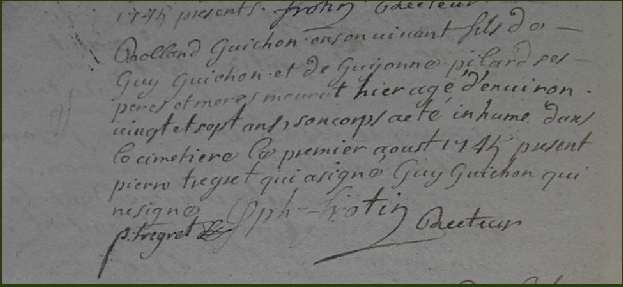 1745 presents. frotin Recteur
Rolland Guichon en son vivant fils de
Guy Guichon et de Guyonne pilard ses
peres et meres mourut hier agé d'environ
vingt et sept ans, son corps a eté inhumé dans
le cimetiere le premier aoust 1745 present
pierre tregret qui a signé Guy Guichon qui
ne signe Jph frotin Recteur
p. tregret